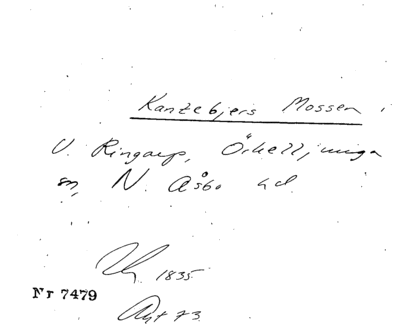 Kantebjers Mossen
V. Ringarp, Örkelljunga
sn, N. Åsbo hd
1835
Nr 7479
Akt 73